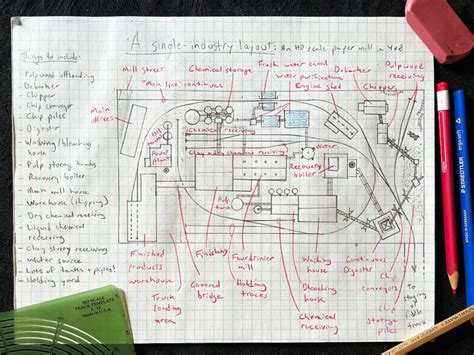 A single-industry layout: An HO scale paper mill in 4x8
Things to include:
- Pulpwood offloading
- Debarker
- Chipper
- Chip conveyor
- Chip piles
- Digester
- Washing/bleaching house
- Pulp storage tanks
- Recovery boiler
- Main mill house
- Warehouse (shipping)
- Dry chemical receiving
- Liquid chemical receiving
- Clay slurry receiving
- Water source
- Lots of tanks + pipes!
- Holding yard
Mill street
Chemical storage
Fresh water canal
Water purification
Debarker
Pulpwood
receiving
"Main line" continues
Engine shed
Chipper
Main
office
Oil
tank
Power
plant
Chemical receiving
Clay slurry
receiving
Water
Recovery
boiler
Pulp
tank
Finished
products
warehouse
Truck
loading
area
Finishing
Covered
bridge
Fourdrinier
mill
Holding
tracks
Washing
house
Bleaching
house
Chemical
receiving
Continuous
Digester
Chip
conveyors
Chip
storage
piles
To
staging
or
fiddle
track
HO SCALE
TRACK TEMPLATE
STAEDTLER
ergosoft